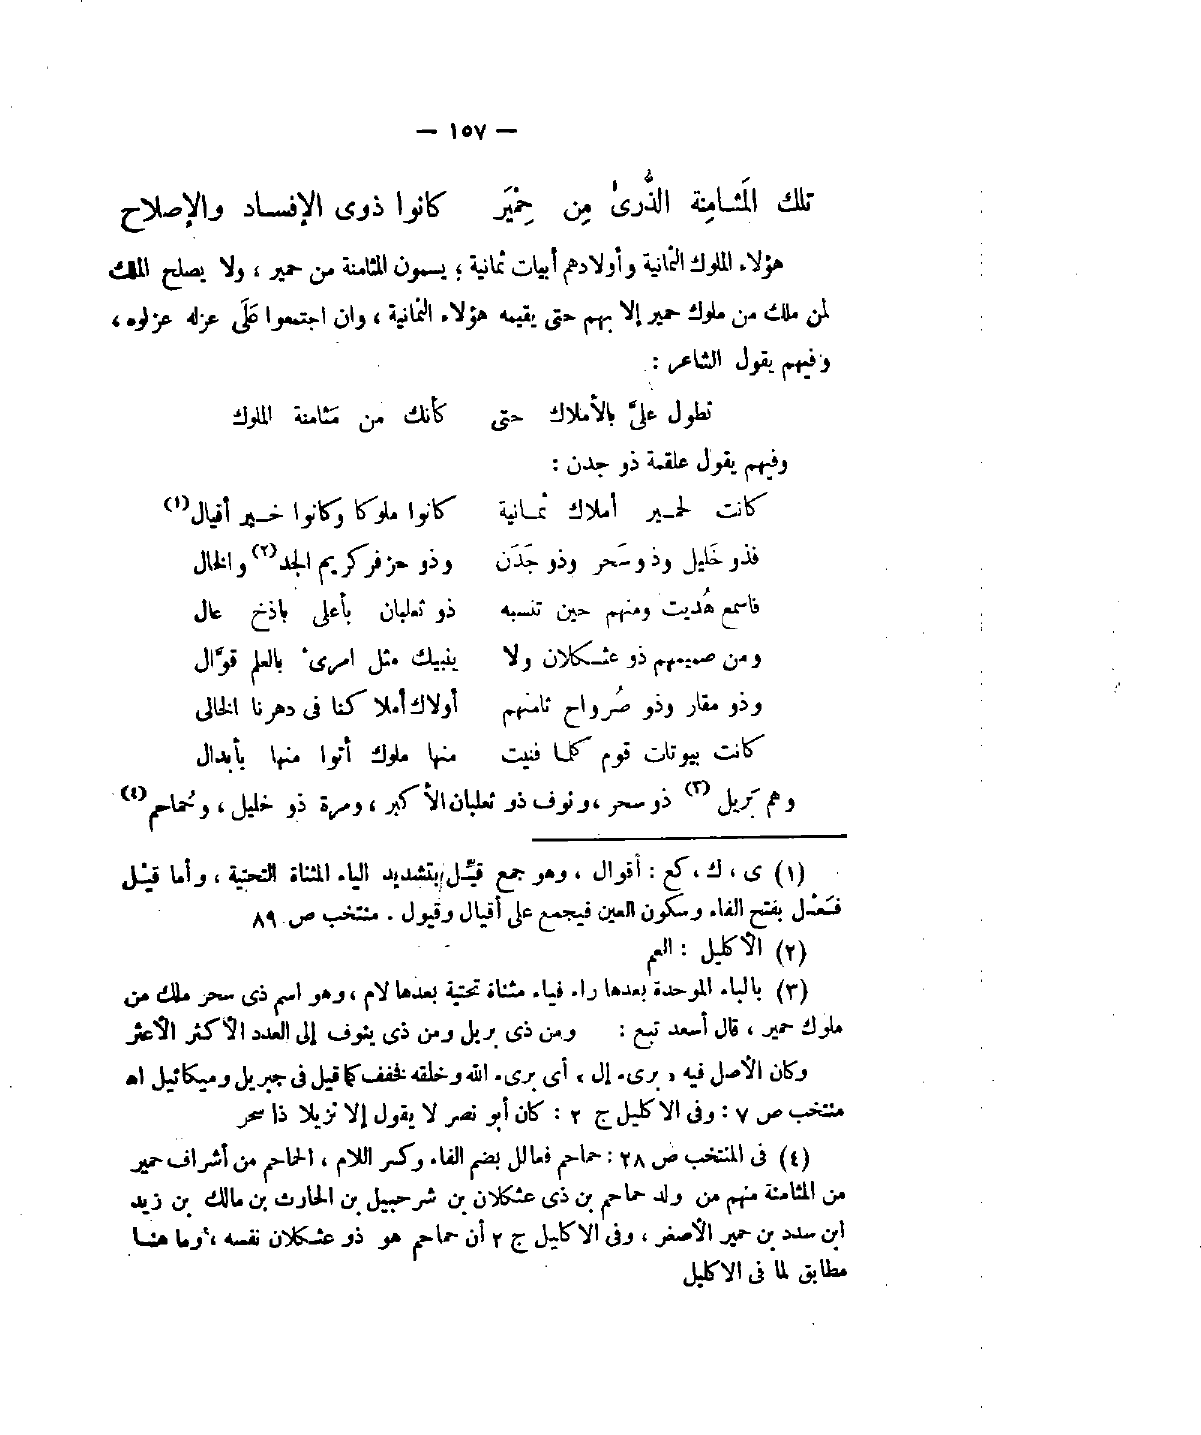 — ١٥٧ —
تلك المَثامِنة الذُّرىٰ مِن حِمْيَر كانوا ذوى الإفساد والإصلاح
هؤلاء الملوك الثمانية وأولادهم أبيات ثمانية ؛ يسمون المثامنة من حمير ، ولا يصلح الملك
لمن ملك من ملوك حمير إلا بهم حتى يقيمه هؤلاء الثمانية ، وان اجتمعوا عَلَى عزله عزلوه ،
وفيهم يقول الشاعر :
تطول علىَّ بالأملاك حتى كأنك من مَثامنة الملوك
وفيهم يقول علقمة ذو جدن :
كانت لحمير أملاك ثمانية كانوا ملوكا وكانوا خير أقيال (١)
فذو خَليل وذو سَحر وذو جَدَن وذو حزفر كريم الجد (٢) والخال
فاسمع هُديت ومنهم حين تنسبه ذو ثعلبان بأعلى باذخ عال
ومن صميمهم ذو عثكلان ولا ينبيك مثل امرىء بالعلم قوَّال
وذو مقار وذو صُرواح ثامنهم أولاك أملاكنا فى دهرنا الخالى
كانت بيوتات قوم كلما فنيت منها ملوك أتوا منها بأبدال
وهم بَريل (٣) ذو سحر ، ونوف ذو ثعلبان الأكبر ، ومرة ذو خليل ، وحُماحم (٤)
(١) ى ، ك ، كع : أقوال ، وهو جمع قيِّل بتشديد الياء المثناة التحتية ، وأما قيْل
فَعْل بفتح الفاء وسكون العين فيجمع على أقيال وقيول . منتخب ص ٨٩
(٢) الأكليل : العم
(٣) بالباء الموحدة بعدها راء فياء مثناة تحتية بعدها لام ، وهو اسم ذى سحر ملك من
ملوك حمير ، قال أسعد تبع : ومن ذى بريل ومن ذى ينوف إلى العدد الأكثر الأعثر
وكان الأصل فيه « برىء إل » أى برىء الله وخلقه فخفف كما قيل فى جبريل وميكائيل اه
منتخب ص ٧ : وفى الاكليل ج ٢ : كان أبو نصر لا يقول إلا نزيلا ذا سحر
(٤) فى المنتخب ص ٢٨ : حماحم فعالل بضم الفاء وكسر اللام ، الحماحم من أشراف حمير
من المثامنة منهم من ولد حماحم بن ذى عثكلان بن شرحبيل بن الحارث بن مالك بن زيد
ابن سدد بن حمير الأصغر ، وفى الاكليل ج ٢ أن حماحم هو ذو عثكلان نفسه ، وما هنا
مطابق لما فى الاكليل